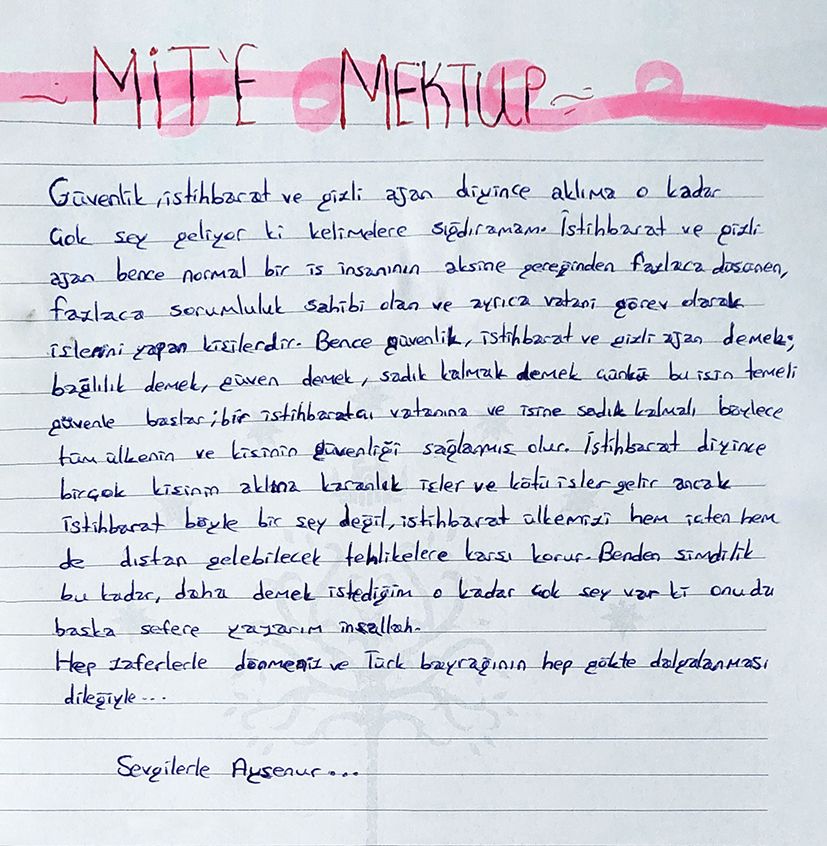 ~ MİT'E MEKTUP ~
Güvenlik, istihbarat ve gizli ajan diyince aklıma o kadar
çok şey geliyor ki kelimelere sığdıramam. İstihbarat ve gizli
ajan bence normal bir iş insanının aksine gereğinden fazlaca düşünen,
fazlaca sorumluluk sahibi olan ve ayrıca vatani görev olarak
işlerini yapan kişilerdir. Bence güvenlik, istihbarat ve gizli ajan demek;
bağlılık demek, güven demek, sadık kalmak demek çünkü bu işin temeli
güvenle başlar; bir istihbaratçı vatanına ve işine sadık kalmalı böylece
tüm ülkenin ve kişinin güvenliği sağlamış olur. İstihbarat diyince
birçok kişinin aklına karanlık işler ve kötü işler gelir ancak
istihbarat böyle bir şey değil, istihbarat ülkemizi hem içten hem
de dıştan gelebilecek tehlikelere karşı korur. Benden şimdilik
bu kadar, daha demek istediğim o kadar çok şey var ki onuda
başka sefere yazarım inşallah.
Hep zaferlerle dönmeniz ve Türk bayrağının hep gökte dalgalanması
dileğiyle...
Sevgilerle Ayşenur...